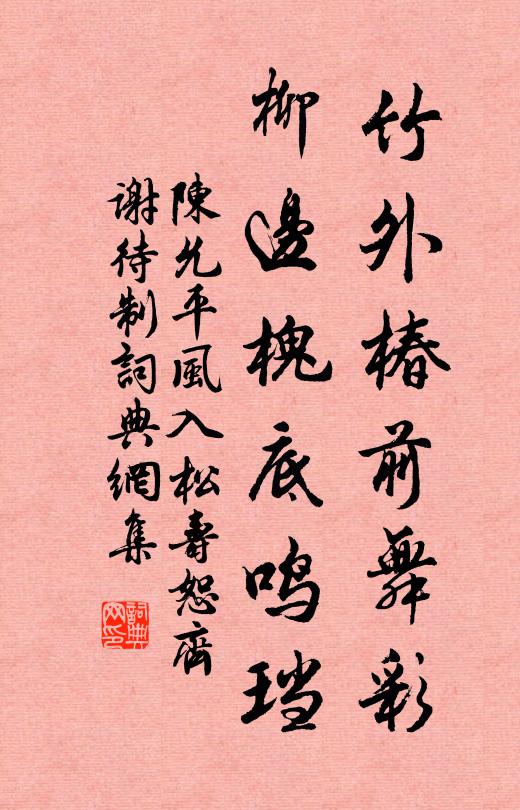 竹外椿前舞彩
柳邊槐底鳴珰
陳允平風入松壽恕齋
謝待制詞典網集
詞典網印